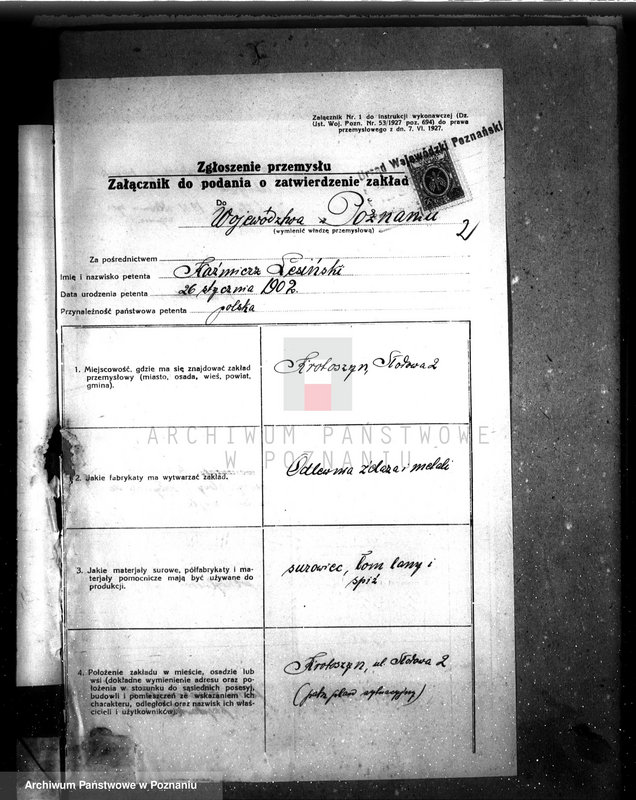 Załącznik Nr. 1 do instrukcji wykonawczej (Dz.
Ust. Woj. Pozn. Nr. 53/1927 poz. 694) do prawa
przemysłowego z dn. 7. VI. 1927.
Urząd Wojewódzki Poznański
Zgłoszenie przemysłu
Załącznik do podania o zatwierdzenie zakład
Do
Województwa w Poznaniu
(wymienić władzę przemysłową)
2
Za pośrednictwem
Imię i nazwisko petenta Kaźmierz Lesiński
Data urodzenia petenta 26 stycznia 1902.
Przynależność państwowa petenta polska
1. Miejscowość, gdzie ma się znajdować zakład
przemysłowy (miasto, osada, wieś, powiat,
gmina).
Krotoszyn, Stodowa 2
ARCHIWUM PAŃSTWOWE
W POZNANIU
2. Jakie fabrykaty ma wytwarzać zakład.
Odlewnia żelaza i metali
3. Jakie materjały surowe, półfabrykaty i ma-
terjały pomocnicze mają być używane do
produkcji.
surowiec, łom lany i
spiż
4. Położenie zakładu w mieście, osadzie lub
wsi (dokładne wymienienie adresu oraz po-
łożenia w stosunku do sąsiednich posesyj,
budowli i pomieszczeń ze wskazaniem ich
charakteru, odległości oraz nazwisk ich właś-
cicieli i użytkowników).
Krotoszyn, ul. Stodowa 2
(patrz plan sytuacyjny)
Archiwum Państwowe w Poznaniu